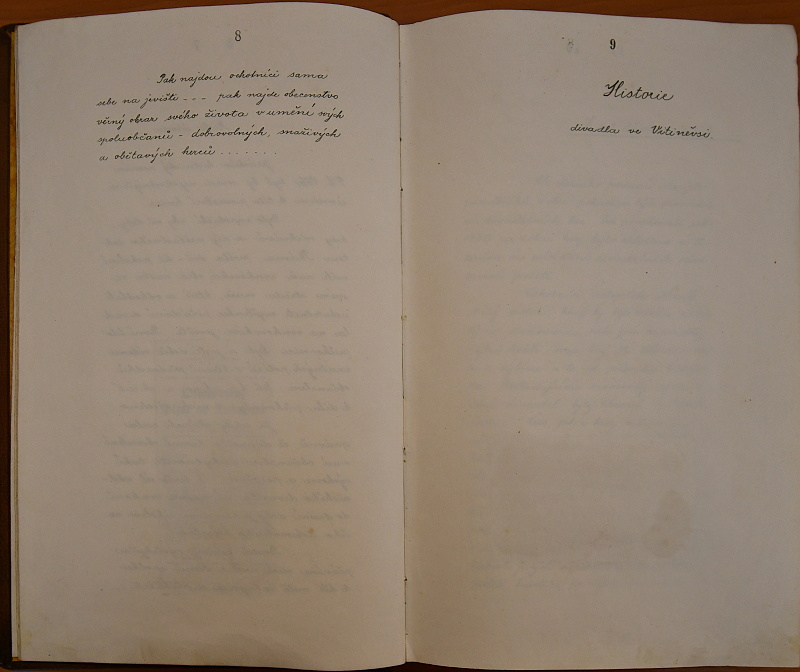 8
Jak najdou ochotníci sama
sebe na jevišti - - - pak najde obecenstvo
věrný obraz svého života v umění svých
spoluobčanů - dobrovolných, snaživých
a obětavých herců . . . . . . .
9
Historie
divadla ve Vitiněvsi